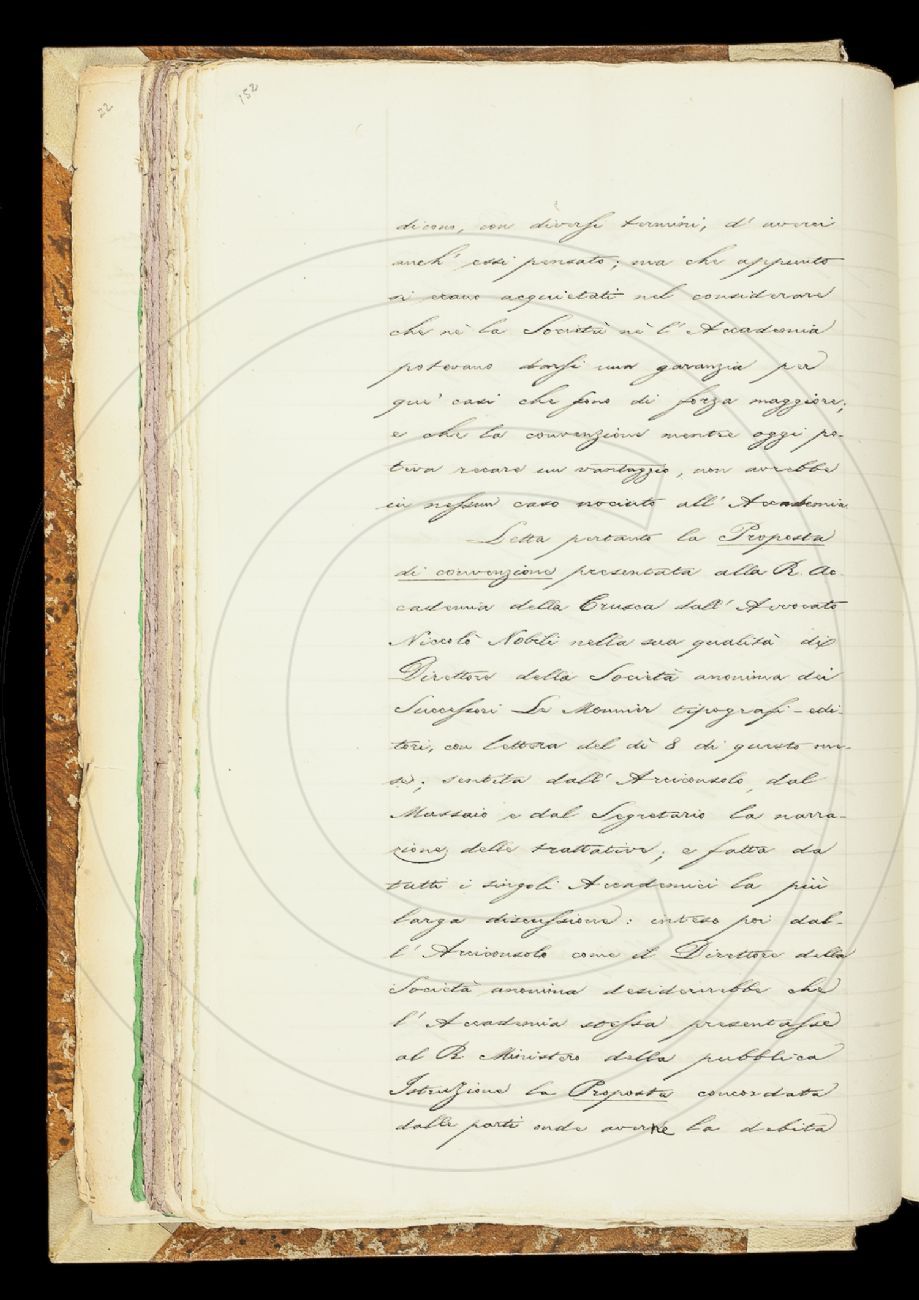 22
152
dicono, con diversi termini, d' averci
anch' essi pensato; ma che appunto
si erano acquietati nel considerare
che nè la Società nè l' Accademia
potevano darsi una garanzia per
que' casi che sono di forza maggiore;
e che la convenzione mentre oggi po-
teva recare un vantaggio, non avrebbe
in nessun caso nociuto all' Accademia.
Letta pertanto la Proposta
di convenzione presentata alla R. Ac-
cademia della Crusca dall' Avvocato
Niccolò Nobili nella sua qualità di
Direttore della Società anonima dei
Successori Le Monnier tipografi-edi-
tori, con lettera del dì 8 di questo me-
se; sentita dall' Arciconsolo, dal
Massaio e dal Segretario la narra-
zione delle trattative; e fatta da
tutti i singoli Accademici la più
larga discussione: inteso poi dal-
l' Arciconsolo come il Direttore della
Società anonima desidererebbe che
l' Accademia stessa presentasse
al R. Ministero della pubblica
Istruzione la Proposta concordata
dalle parti onde averne la debita